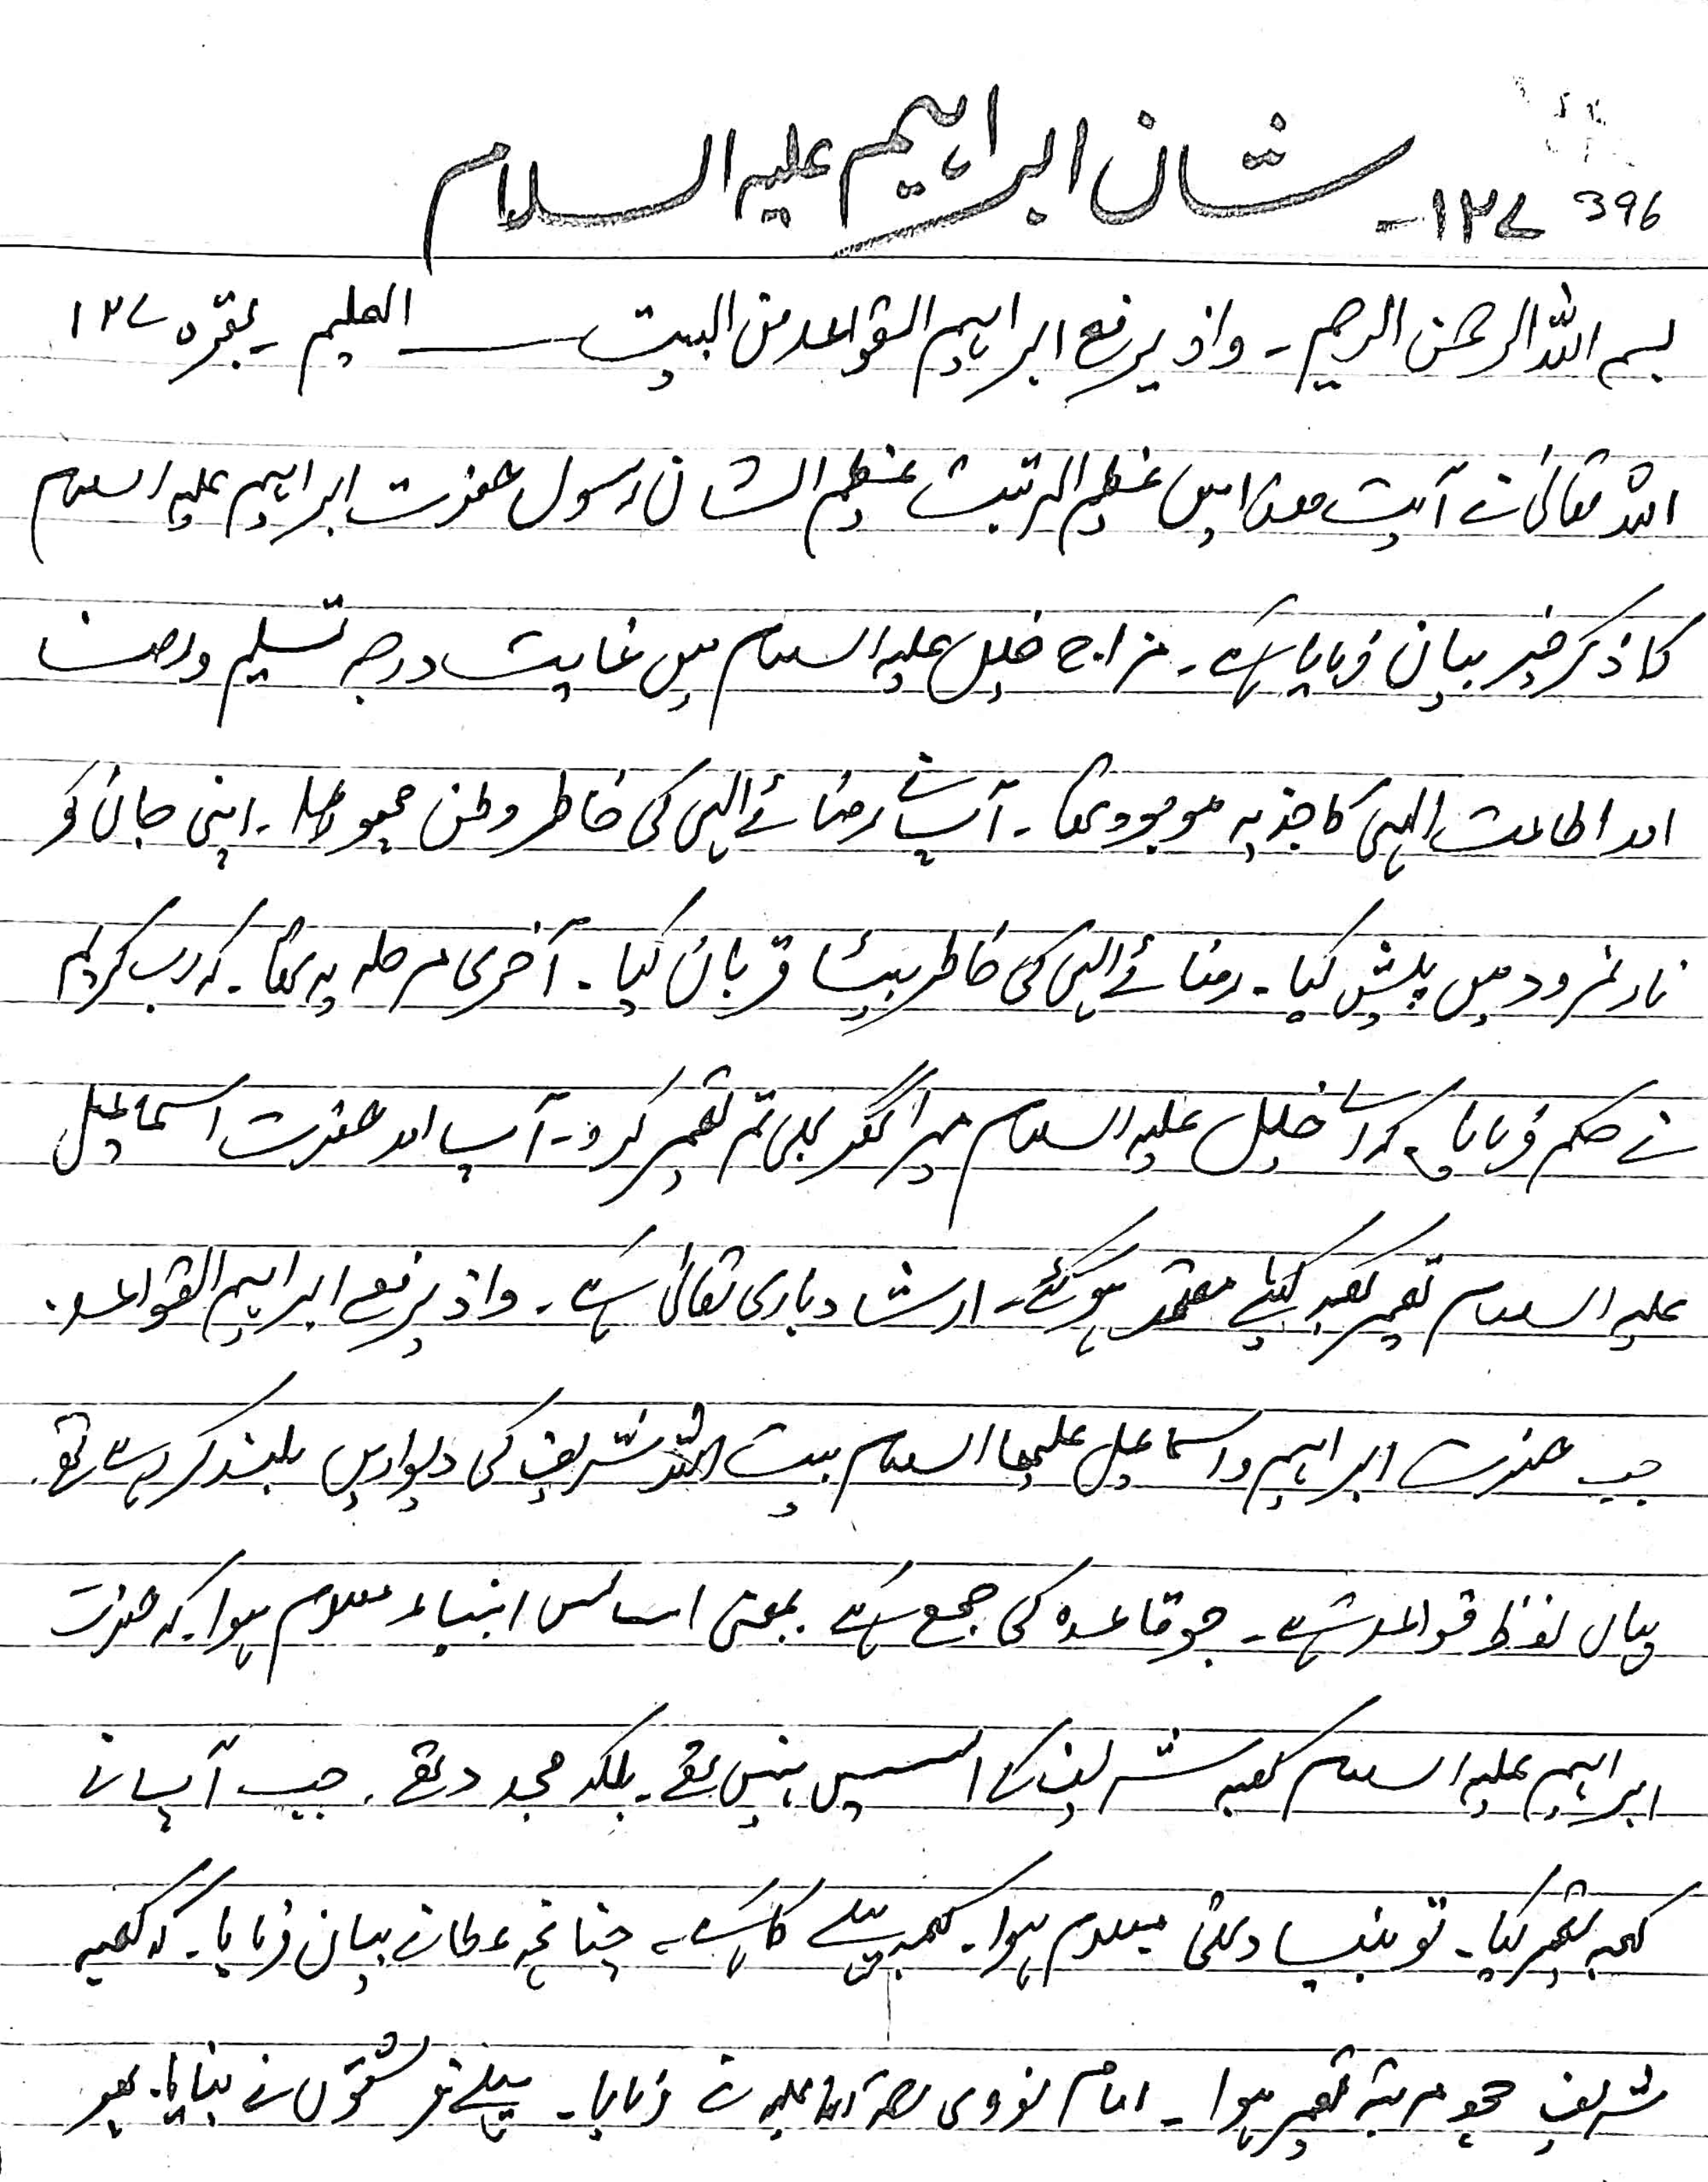 396 ۱۲۷۔ شان ابراہیم علیہ السلام
بسم اللہ الرحمن الرحیم ۔ واذ یرفع ابراہیم القواعد من البیت ــــ العلیم ۔ بقرہ ۱۲۷
اللہ تعالیٰ نے آیت میں عظیم المرتبت عظیم الشان رسول حضرت ابراہیم علیہ السلام
کا ذکر خیر بیان فرمایا ہے ۔ مزاج خلیل علیہ السلام میں غایت درجہ تسلیم ورضا
اور اطاعت الہی کا جذبہ موجود تھا ۔ آپ نے رضائے الہی کی خاطر وطن چھوڑا ۔ اپنی جان کو
نار نمرود میں پیش کیا ۔ رضائے الہی کی خاطر بیٹا قربان کیا ۔ آخری مرحلہ یہ تھا ۔ کہ رب کریم
نے حکم فرمایا ۔ کہ اے خلیل علیہ السلام میرا گھر بھی تم تعمیر کرو ۔ آپ اور حضرت اسماعیل
علیہ السلام تعمیر کعبہ کیلئے ہو گئے ۔ ارشاد باری تعالیٰ ہے ۔ واذ یرفع ابراہیم القواعد ۔
جب حضرت ابراہیم و اسماعیل علیھما السلام بیت اللہ شریف کی دیواریں بلند کر رہے تھے
یہاں لفظ قواعد ہے ۔ جو قاعدہ کی جمع ہے ۔ بمعنی اساس معلوم ہوا ۔ کہ حضرت
ابراہیم علیہ السلام کعبہ شریف کے نہیں تھے ۔ بلکہ مجدد تھے ۔ جب آپ نے
کعبہ تعمیر کیا ۔ تو بنیاد تھی معلوم ہوا ۔ کعبہ پہلے کا ہے ۔ چنانچہ علماء نے بیان فرمایا ۔ کہ کعبہ
شریف چھ مرتبہ تعمیر ہوا ۔ امام نووی رحمۃ اللہ علیہ نے فرمایا ۔ پہلے فرشتوں نے بنایا ۔ پھر